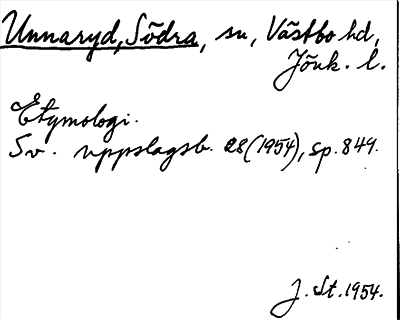 Unnaryd, Södra, sn, Västbo hd,
Jönk. l.
Etymologi.
Sv. uppslagsb. 28(1954), sp. 849.
J. St. 1954.